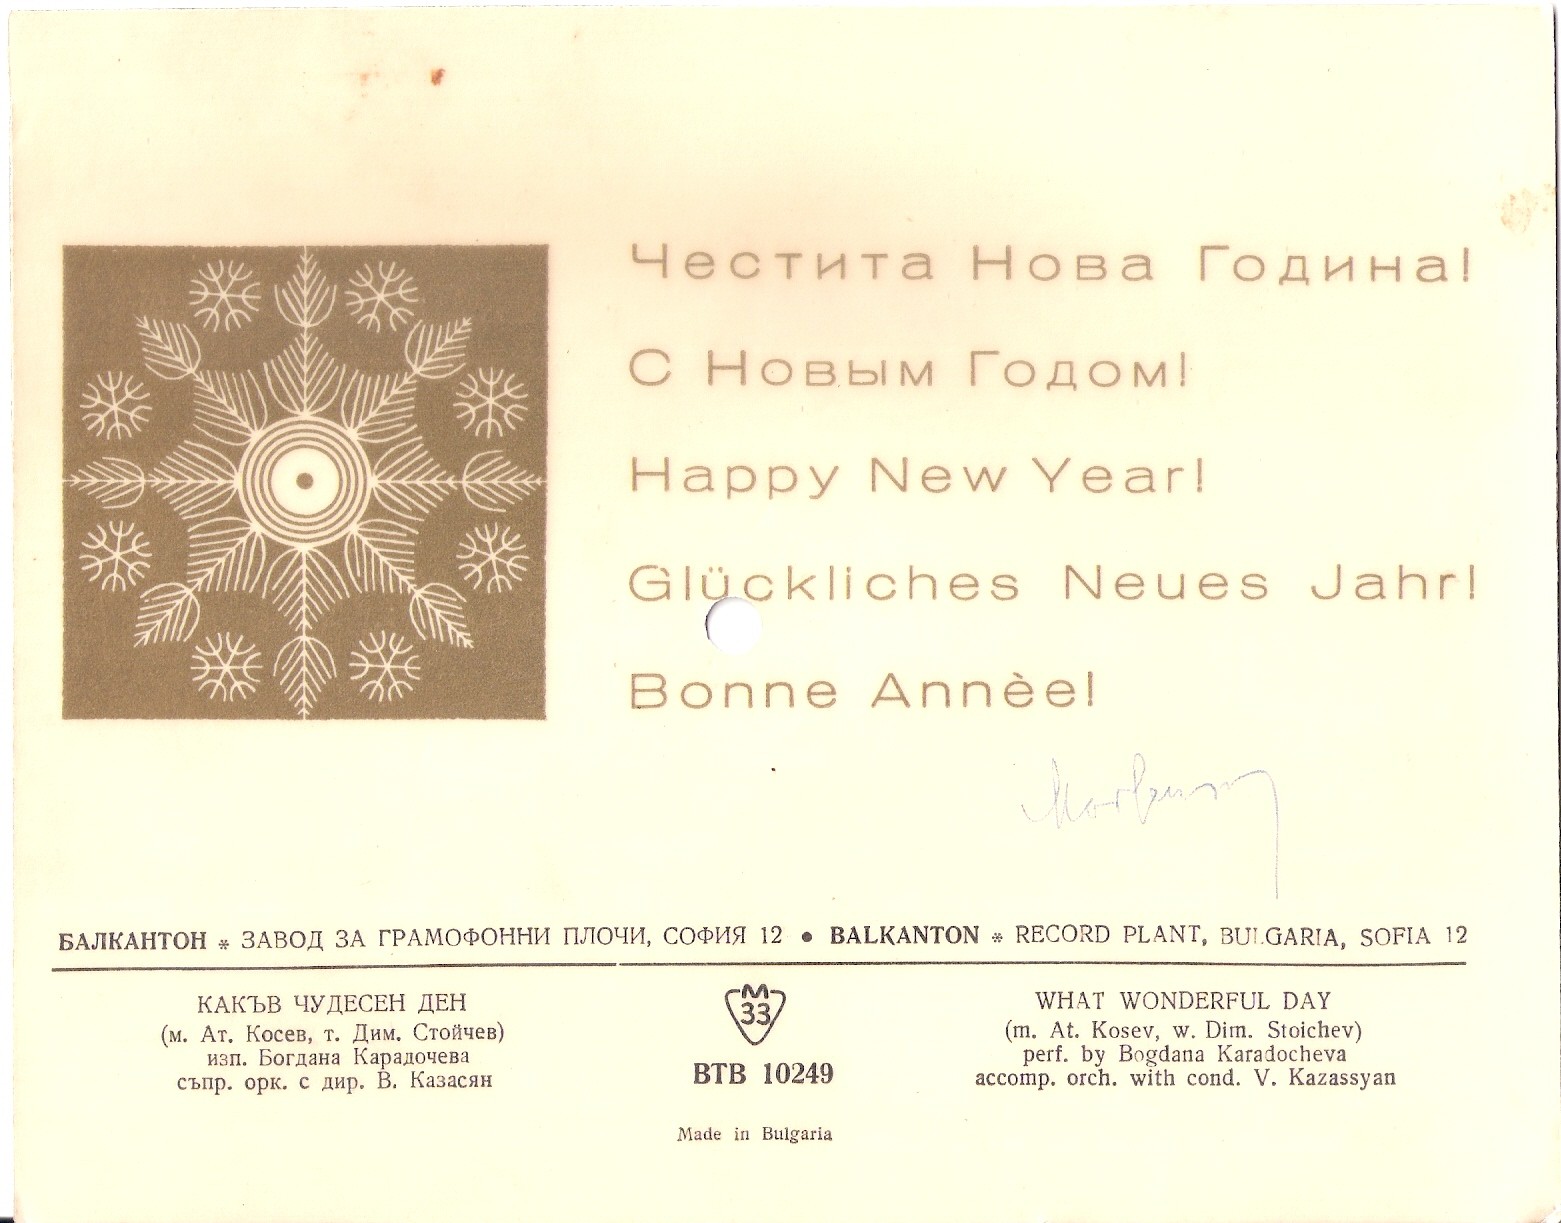 Честита Нова Година!
С Новым Годом!
Happy New Year!
Glückliches Neues Jahr!
Bonne Annèe!
БАЛКАНТОН * ЗАВОД ЗА ГРАМОФОННИ ПЛОЧИ, СОФИЯ 12 • BALKANTON * RECORD PLANT, BULGARIA, SOFIA 12
КАКЪВ ЧУДЕСЕН ДЕН
(м. Ат. Косев, т. Дим. Стойчев)
изп. Богдана Карадочева
съпр. орк. с дир. В. Казасян
М
33
ВТВ 10249
Made in Bulgaria
WHAT WONDERFUL DAY
(m. At. Kosev, w. Dim. Stoichev)
perf. by Bogdana Karadocheva
accomp. orch. with cond. V. Kazassyan